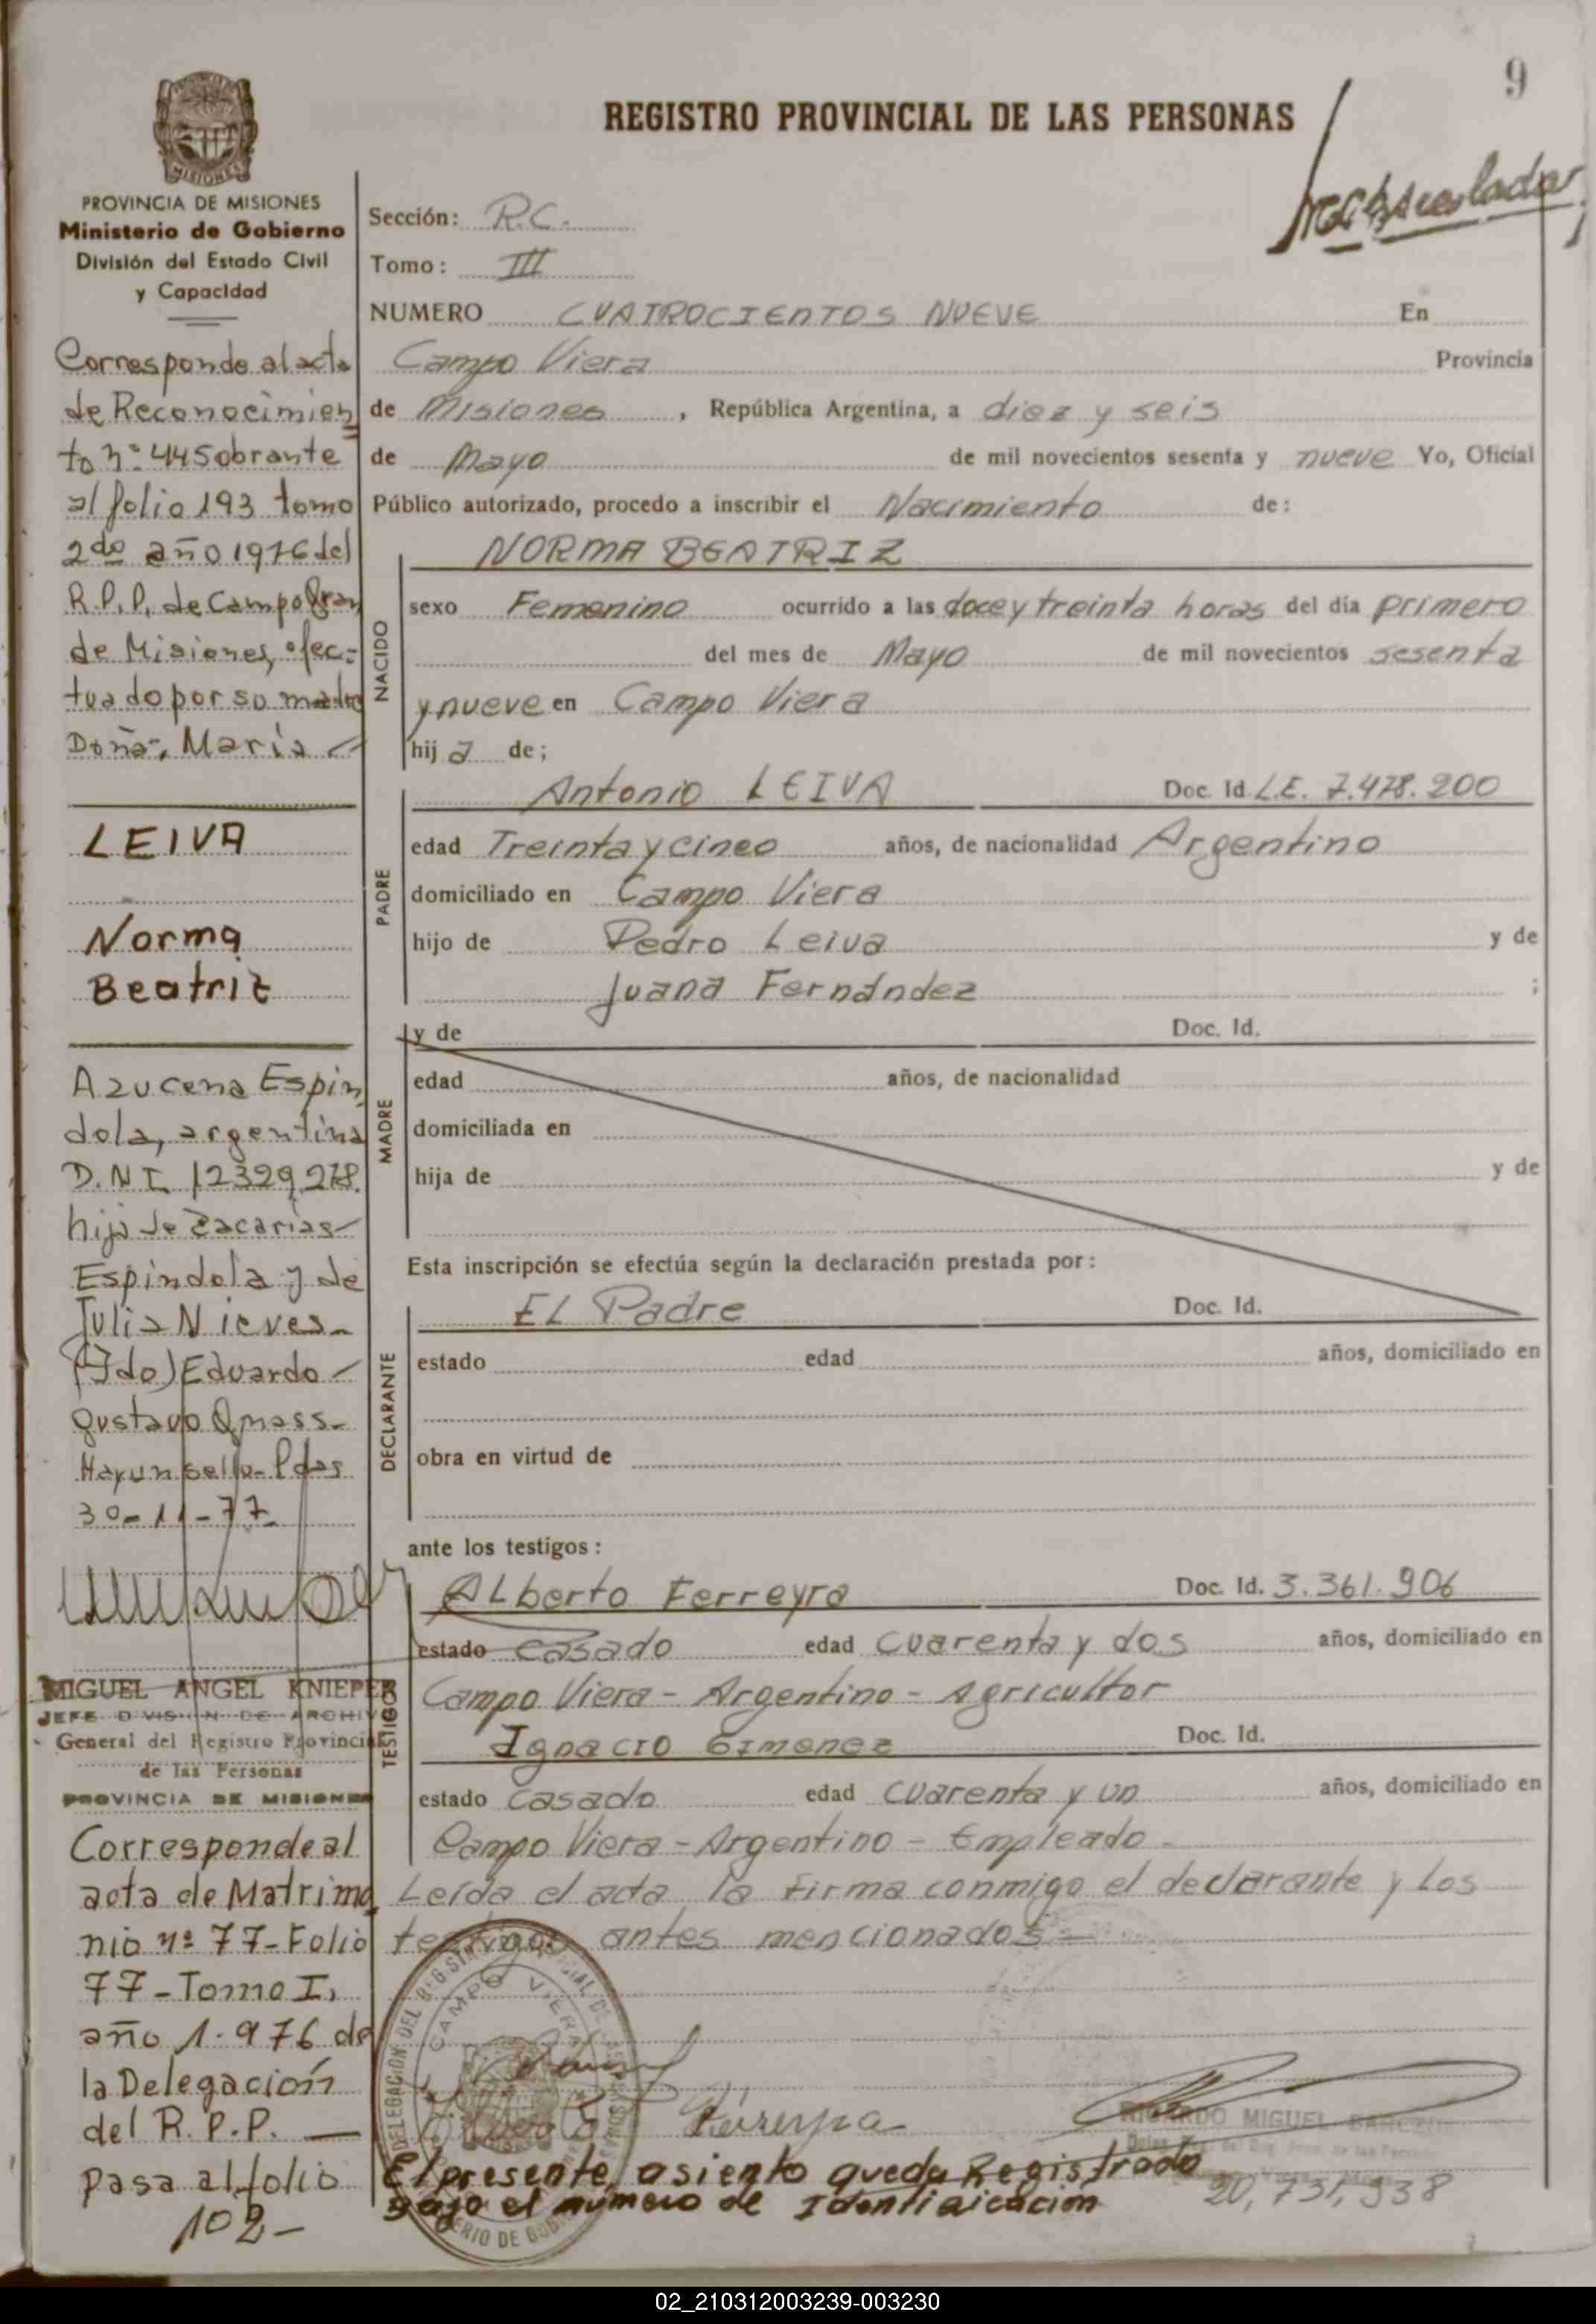 9
REGISTRO PROVINCIAL DE LAS PERSONAS
MISIONES
PROVINCIA DE MISIONES
Ministerio de Gobierno
División del Estado Civil
y Capacidad
Corresponde al acta
de Reconocimien
to nº 445 obrante
al folio 193 tomo
2do año 1976 del
R.P.P. de Campo Gran
de Misiones, efec=
tuado por su madre
Doña, María
LEIVA
Norma
Beatriz
Azucena Espín
dola, argentina
D.N.I. 12329278.
hija de Zacarías
Espíndola y de
Julia Nieves_
(Fdo) Eduardo
Gustavo
Hay un sello_ Pdas
30-11-77
MIGUEL ANGEL KNIEPER
JEFE DIVISION DE ARCHIVO
General del Registro Provincial
de las Personas
PROVINCIA DE MISIONES
Corresponde al
acta de Matrimo
nio nº 77-Folio
77-Tomo I,
año 1.976 de
la Delegación
del R.P.P. —
pasa al folio
102_
Sección: R.C.
Tomo: III
NUMERO CUATROCIENTOS NUEVE En
Campo Viera Provincia
de Misiones, República Argentina, a diez y seis
de Mayo de mil novecientos sesenta y nueve Yo, Oficial
Público autorizado, procedo a inscribir el Nacimiento de:
NACIDO
NORMA BEATRIZ
sexo Femenino ocurrido a las doce y treinta horas del día primero
del mes de Mayo de mil novecientos sesenta
y nueve en Campo Viera
hija de;
PADRE
Antonio LEIVA Doc. Id. L.E. 7.478.200
edad Treinta y cinco años, de nacionalidad Argentino
domiciliado en Campo Viera
hijo de Pedro Leiva y de
Juana Fernández ;
MADRE
y de Doc. Id.
edad años, de nacionalidad
domiciliada en
hija de y de
Esta inscripción se efectúa según la declaración prestada por:
DECLARANTE
El Padre Doc. Id.
estado edad años, domiciliado en
obra en virtud de
ante los testigos:
TESTIGOS
Alberto Ferreyra Doc. Id. 3.361.906
estado casado edad cuarenta y dos años, domiciliado en
Campo Viera - Argentino - Agricultor
Ignacio Gimenez Doc. Id.
estado casado edad cuarenta y un años, domiciliado en
Campo Viera - Argentino - Empleado -
Leída el acta la firma conmigo el declarante y los
testigos antes mencionados=
CAMPO VIERA
RICARDO MIGUEL
El presente asiento queda Registrado
Bajo el número de Identificación 20,731,938
02_210312003239-003230